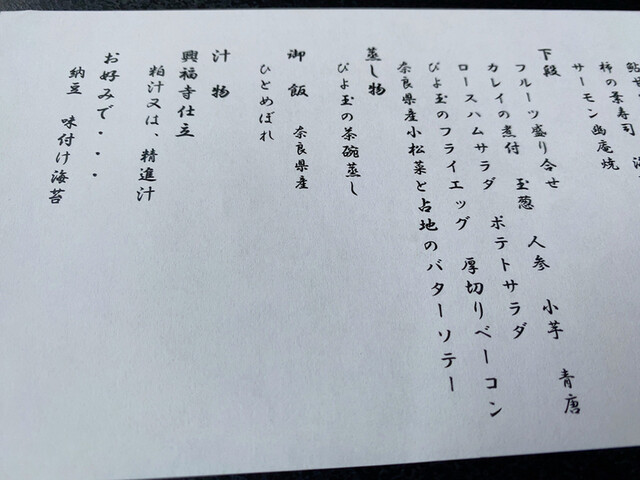 柿の葉寿司
サーモン幽庵焼
下段
フルーツ盛り合せ
カレイの煮付 玉葱 人参 小芋 青唐
ロースハムサラダ ポテトサラダ
ぴよ玉のフライエッグ 厚切りベーコン
奈良県産小松菜と占地のバターソテー
蒸し物
ぴよ玉の茶碗蒸し
御飯 奈良県産
ひとめぼれ
汁物
興福寺仕立
粕汁又は、精進汁
お好みで・・・
納豆 味付け海苔